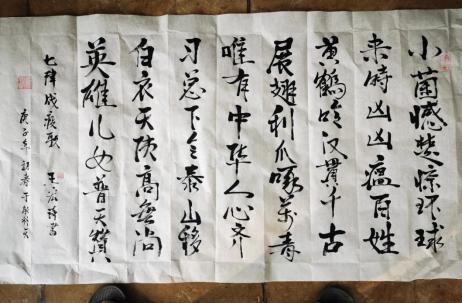 小菌憾楚惊环球
来時凶凶瘟百姓
黄鹤吟汉貫千古
展翅利爪啄萬毒
唯有中华人心齐
习总下令泰山移
白衣天使高無尚
英雄儿女普天赞
七律战疫歌
庚子年初春于